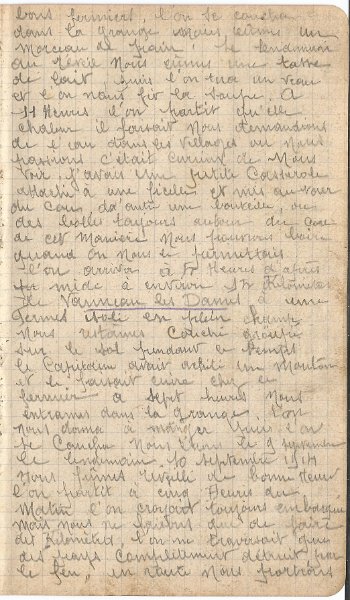 bons fermiers, l'on se coucha
dans la grange nous eumes un
morceau de pain. Le lendemain
au réveil Nous eumes une tasse
de lait, puis l'on tua un veau
et l'on nous fit la soupe. A
11 Heures l'on partit qu'elle
chaleur il faisait Nous demandions
de l'eau dans les villages ou Nous
passions c'était curieux de Nous
voir, J'avais une petite Casserole
attachée à une ficelle et mis autour
du Cou, d'autre une bouteille, ou
des boites toujours autour du Cou
de cet Manière Nous pouvions boire
quand on Nous le permettais
l'on arriva à 5 Heures d'après
midi à environ Kilomètres
de des Dames à une
fermes isolé en plein champ
Nous restames Couché groupé
sur le sol pendant ce temps
le Capitaine avait acheté un Mouton
et le faisait cuire chez le
fermier à sept heures Nous
entrames dans la Grange, l'on
nous donna à manger puis l'on
se Coucha Nous étions le 9 septembre
le lendemain 10 septembre 1914
Nous fumes réveillé de bonne Heure
l'on partit à cinq Heures du
Matin l'on croyait toujours embarquer
Mais nous ne faisions que de faire
des Kilomètres, l'on ne traversait que
des pays Complètement détruit par
le feu, en route Nous